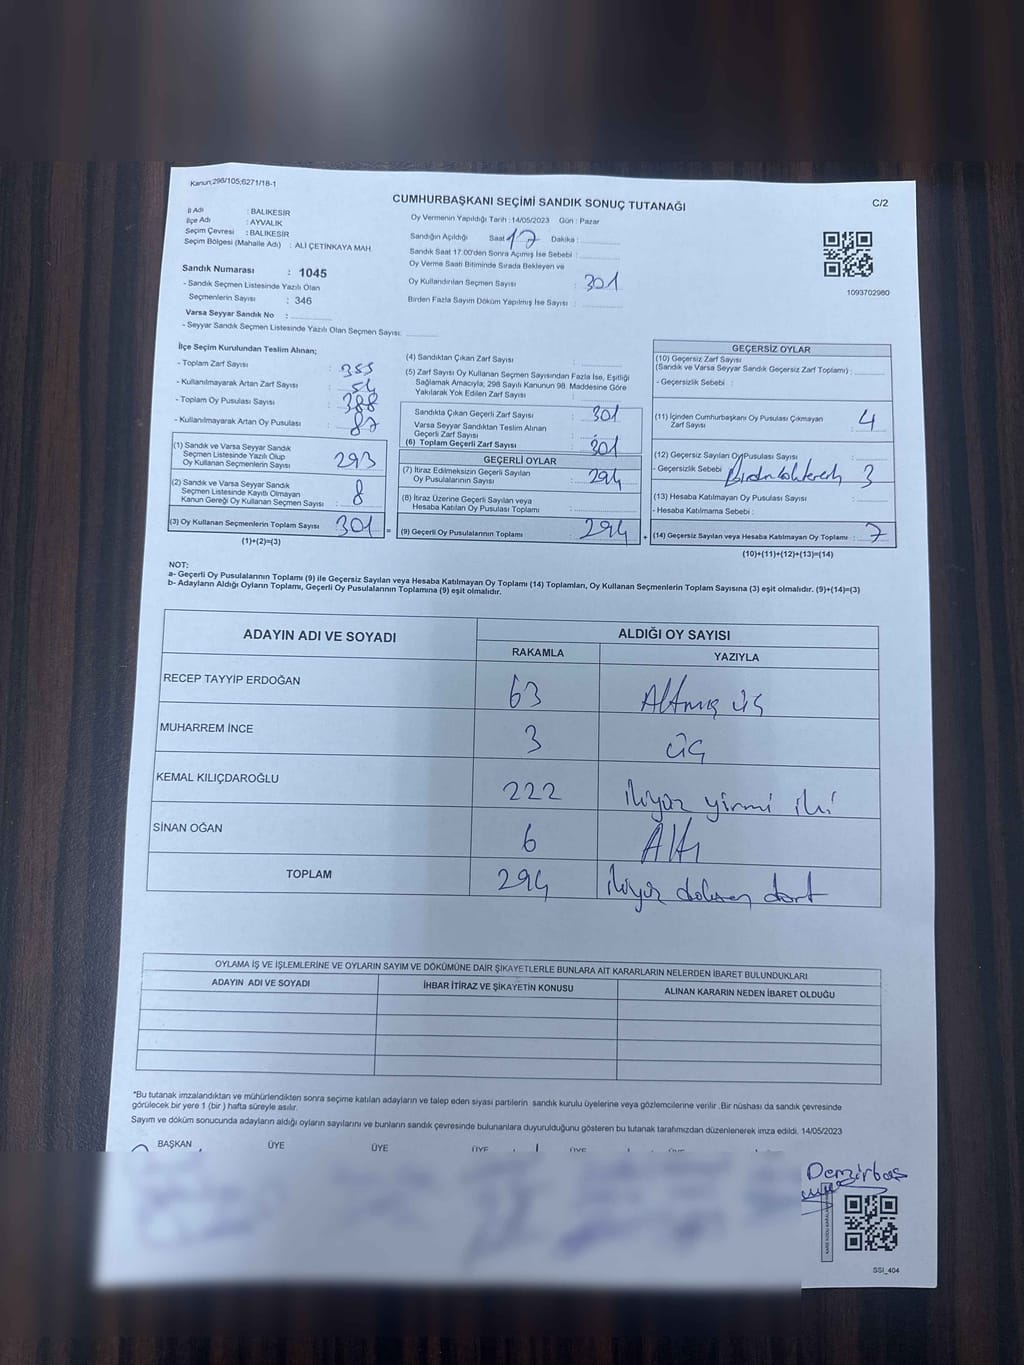 Kanun;298/105;6271/18-1
C/2
CUMHURBAŞKANI SEÇİMİ SANDIK SONUÇ TUTANAĞI
İl Adı : BALIKESİR
İlçe Adı : AYVALIK
Seçim Çevresi : BALIKESİR
Seçim Bölgesi (Mahalle Adı) : ALİ ÇETİNKAYA MAH.
Sandık Numarası : 1045
- Sandık Seçmen Listesinde Yazılı Olan
Seçmenlerin Sayısı : 346
Varsa Seyyar Sandık No :
- Seyyar Sandık Seçmen Listesinde Yazılı Olan Seçmen Sayısı:
Oy Vermenin Yapıldığı Tarih :14/05/2023 Gün : Pazar
Sandığın Açıldığı Saat 17 Dakika :
Sandık Saat 17.00'den Sonra Açılmış İse Sebebi :
Oy Verme Saati Bitiminde Sırada Bekleyen ve
Oy Kullandırılan Seçmen Sayısı : 301
Birden Fazla Sayım Döküm Yapılmış İse Sayısı :
1093702980
İlçe Seçim Kurulundan Teslim Alınan;
- Toplam Zarf Sayısı : 355
- Kullanılmayarak Artan Zarf Sayısı : 54
- Toplam Oy Pusulası Sayısı : 388
- Kullanılmayarak Artan Oy Pusulası : 87
(1) Sandık ve Varsa Seyyar Sandık
Seçmen Listesinde Yazılı Olup
Oy Kullanan Seçmenlerin Sayısı : 293
(2) Sandık ve Varsa Seyyar Sandık
Seçmen Listesinde Kayıtlı Olmayan
Kanun Gereği Oy Kullanan Seçmen Sayısı : 8
(3) Oy Kullanan Seçmenlerin Toplam Sayısı 301 =
(1)+(2)=(3)
(4) Sandıktan Çıkan Zarf Sayısı :
(5) Zarf Sayısı Oy Kullanan Seçmen Sayısından Fazla İse, Eşitliği
Sağlamak Amacıyla; 298 Sayılı Kanunun 98. Maddesine Göre
Yakılarak Yok Edilen Zarf Sayısı :
Sandıkta Çıkan Geçerli Zarf Sayısı : 301
Varsa Seyyar Sandıktan Teslim Alınan
Geçerli Zarf Sayısı :
(6) Toplam Geçerli Zarf Sayısı : 301
GEÇERLİ OYLAR
(7) İtiraz Edilmeksizin Geçerli Sayılan
Oy Pusulasının Sayısı : 294
(8) İtiraz Üzerine Geçerli Sayılan veya
Hesaba Katılan Oy Pusulası Toplamı :
(9) Geçerli Oy Pusulalarının Toplamı : 294 +
GEÇERSİZ OYLAR
(10) Geçersiz Zarf Sayısı
(Sandık ve Varsa Seyyar Sandık Geçersiz Zarf Toplamı) :
- Geçersizlik Sebebi :
(11) İçinden Cumhurbaşkanı Oy Pusulası Çıkmayan
Zarf Sayısı : 4
(12) Geçersiz Sayılan Oy Pusulası Sayısı :
- Geçersizlik Sebebi 3
(13) Hesaba Katılmayan Oy Pusulası Sayısı :
- Hesaba Katılmama Sebebi :
(14) Geçersiz Sayılan veya Hesaba Katılmayan Oy Toplamı : 7
(10)+(11)+(12)+(13)=(14)
NOT:
a- Geçerli Oy Pusulalarının Toplamı (9) ile Geçersiz Sayılan veya Hesaba Katılmayan Oy Toplamı (14) Toplamları, Oy Kullanan Seçmenlerin Toplam Sayısına (3) eşit olmalıdır. (9)+(14)=(3)
b- Adayların Aldığı Oyların Toplamı, Geçerli Oy Pusulalarının Toplamına (9) eşit olmalıdır.
ADAYIN ADI VE SOYADI ALDIĞI OY SAYISI
RAKAMLA YAZIYLA
RECEP TAYYİP ERDOĞAN 63 Altmış üç
MUHARREM İNCE 3 üç
KEMAL KILIÇDAROĞLU 222 ikiyüz yirmi iki
SİNAN OĞAN 6 Altı
TOPLAM 294 ikiyüz doksan dört
OYLAMA İŞ VE İŞLEMLERİNE VE OYLARIN SAYIM VE DÖKÜMÜNE DAİR ŞİKAYETLERLE BUNLARA AİT KARARLARIN NELERDEN İBARET BULUNDUKLARI
ADAYIN ADI VE SOYADI İHBAR İTİRAZ VE ŞİKAYETİN KONUSU ALINAN KARARIN NEDEN İBARET OLDUĞU
*Bu tutanak imzalandıktan ve mühürlendikten sonra seçime katılan adayların ve talep eden siyasi partilerin sandık kurulu üyelerine veya gözlemcilerine verilir .Bir nüshası da sandık çevresinde
görülecek bir yere 1 (bir ) hafta süreyle asılır.
Sayım ve döküm sonucunda adayların aldığı oyların sayılarını ve bunların sandık çevresinde bulunanlara duyurulduğunu gösteren bu tutanak tarafımızdan düzenlenerek imza edildi. 14/05/2023
BAŞKAN ÜYE ÜYE ÜYE ÜYE ÜYE
Demirbaş
SSI_404